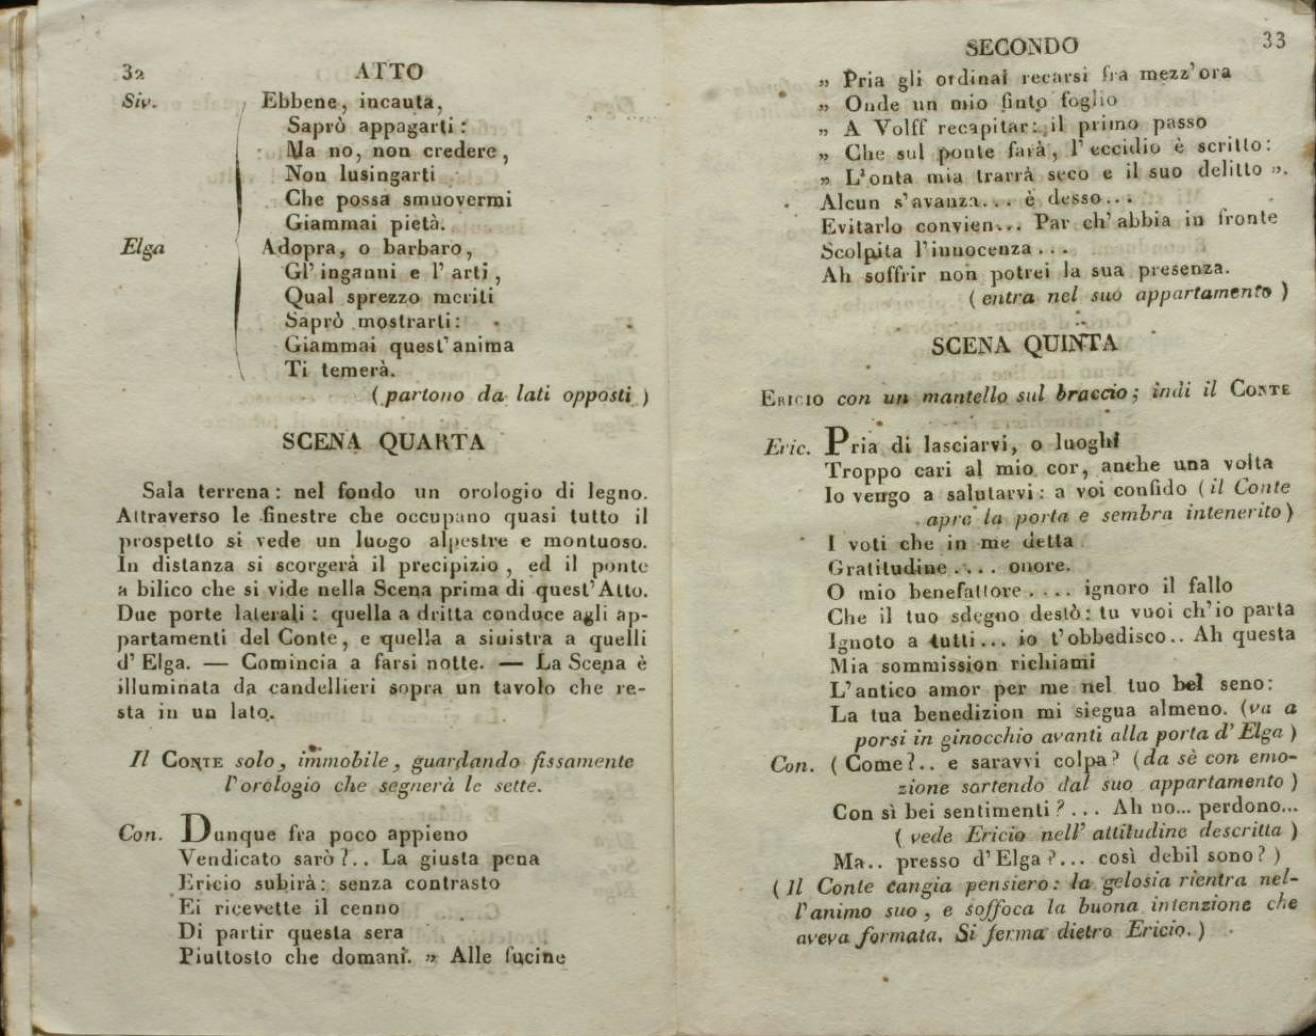 32 ATTO
Siv. Ebbene, incauta,
Saprò appagarti:
Ma no, non credere,
Non lusingarti
Che possa smuovermi
Giammai pietà.
Elga Adopra, o barbaro,
Gl' inganni e l' arti,
Qual sprezzo meriti
Saprò mostrarti:
Giammai quest'anima
Ti temerà.
(partono da lati opposti)
SCENA QUARTA
Sala terrena: nel fondo un orologio di legno.
Attraverso le finestre che occupano quasi tutto il
prospetto si vede un luogo alpestre e montuoso.
In distanza si scorgerà il precipizio, ed il ponte
a bilico che si vide nella Scena prima di quest'Atto.
Due porte laterali: quella a dritta conduce agli ap-
partamenti del Conte, e quella a sinistra a quelli
d' Elga. — Comincia a farsi notte. — La Scena è
illuminata da candellieri sopra un tavolo che re-
sta in un lato.
Il CONTE solo, immobile, guardando fissamente
l'orologio che segnerà le sette.
Con. Dunque fra poco appieno
Vendicato sarò?.. La giusta pena
Ericio subirà: senza contrasto
Ei ricevette il cenno
Di partir questa sera
Piuttosto che domani. „ Alle fucine
SECONDO 33
„ Pria gli ordinai recarsi fra mezz'ora
„ Onde un mio finto foglio
„ A Volff recapitar: il primo passo
„ Che sul ponte farà, l'eccidio è scritto:
„ L'onta mia trarrà seco e il suo delitto „.
Alcun s'avanza... è desso...
Evitarlo convien... Par ch'abbia in fronte
Scolpita l'innocenza...
Ah soffrir non potrei la sua presenza.
(entra nel suo appartamento)
SCENA QUINTA
ERICIO con un mantello sul braccio; indi il CONTE
Eric. Pria di lasciarvi, o luoghi
Troppo cari al mio cor, anche una volta
Io vengo a salutarvi: a voi confido (il Conte
apre la porta e sembra intenerito)
I voti che in me detta
Gratitudine.... onore.
O mio benefattore.... ignoro il fallo
Che il tuo sdegno destò: tu vuoi ch'io parta
Ignoto a tutti... io t'obbedisco.. Ah questa
Mia sommission richiami
L'antico amor per me nel tuo bel seno:
La tua benedizion mi siegua almeno. (va a
porsi in ginocchio avanti alla porta d'Elga)
Con. (Come?.. e saravvi colpa? (da sè con emo-
zione sortendo dal suo appartamento)
Con sì bei sentimenti?... Ah no... perdono...
(vede Ericio nell' attitudine descritta)
Ma.. presso d'Elga?... così debil sono?)
(Il Conte cangia pensiero: la gelosia rientra nel-
l'animo suo, e soffoca la buona intenzione che
aveva formata. Si ferma dietro Ericio.)